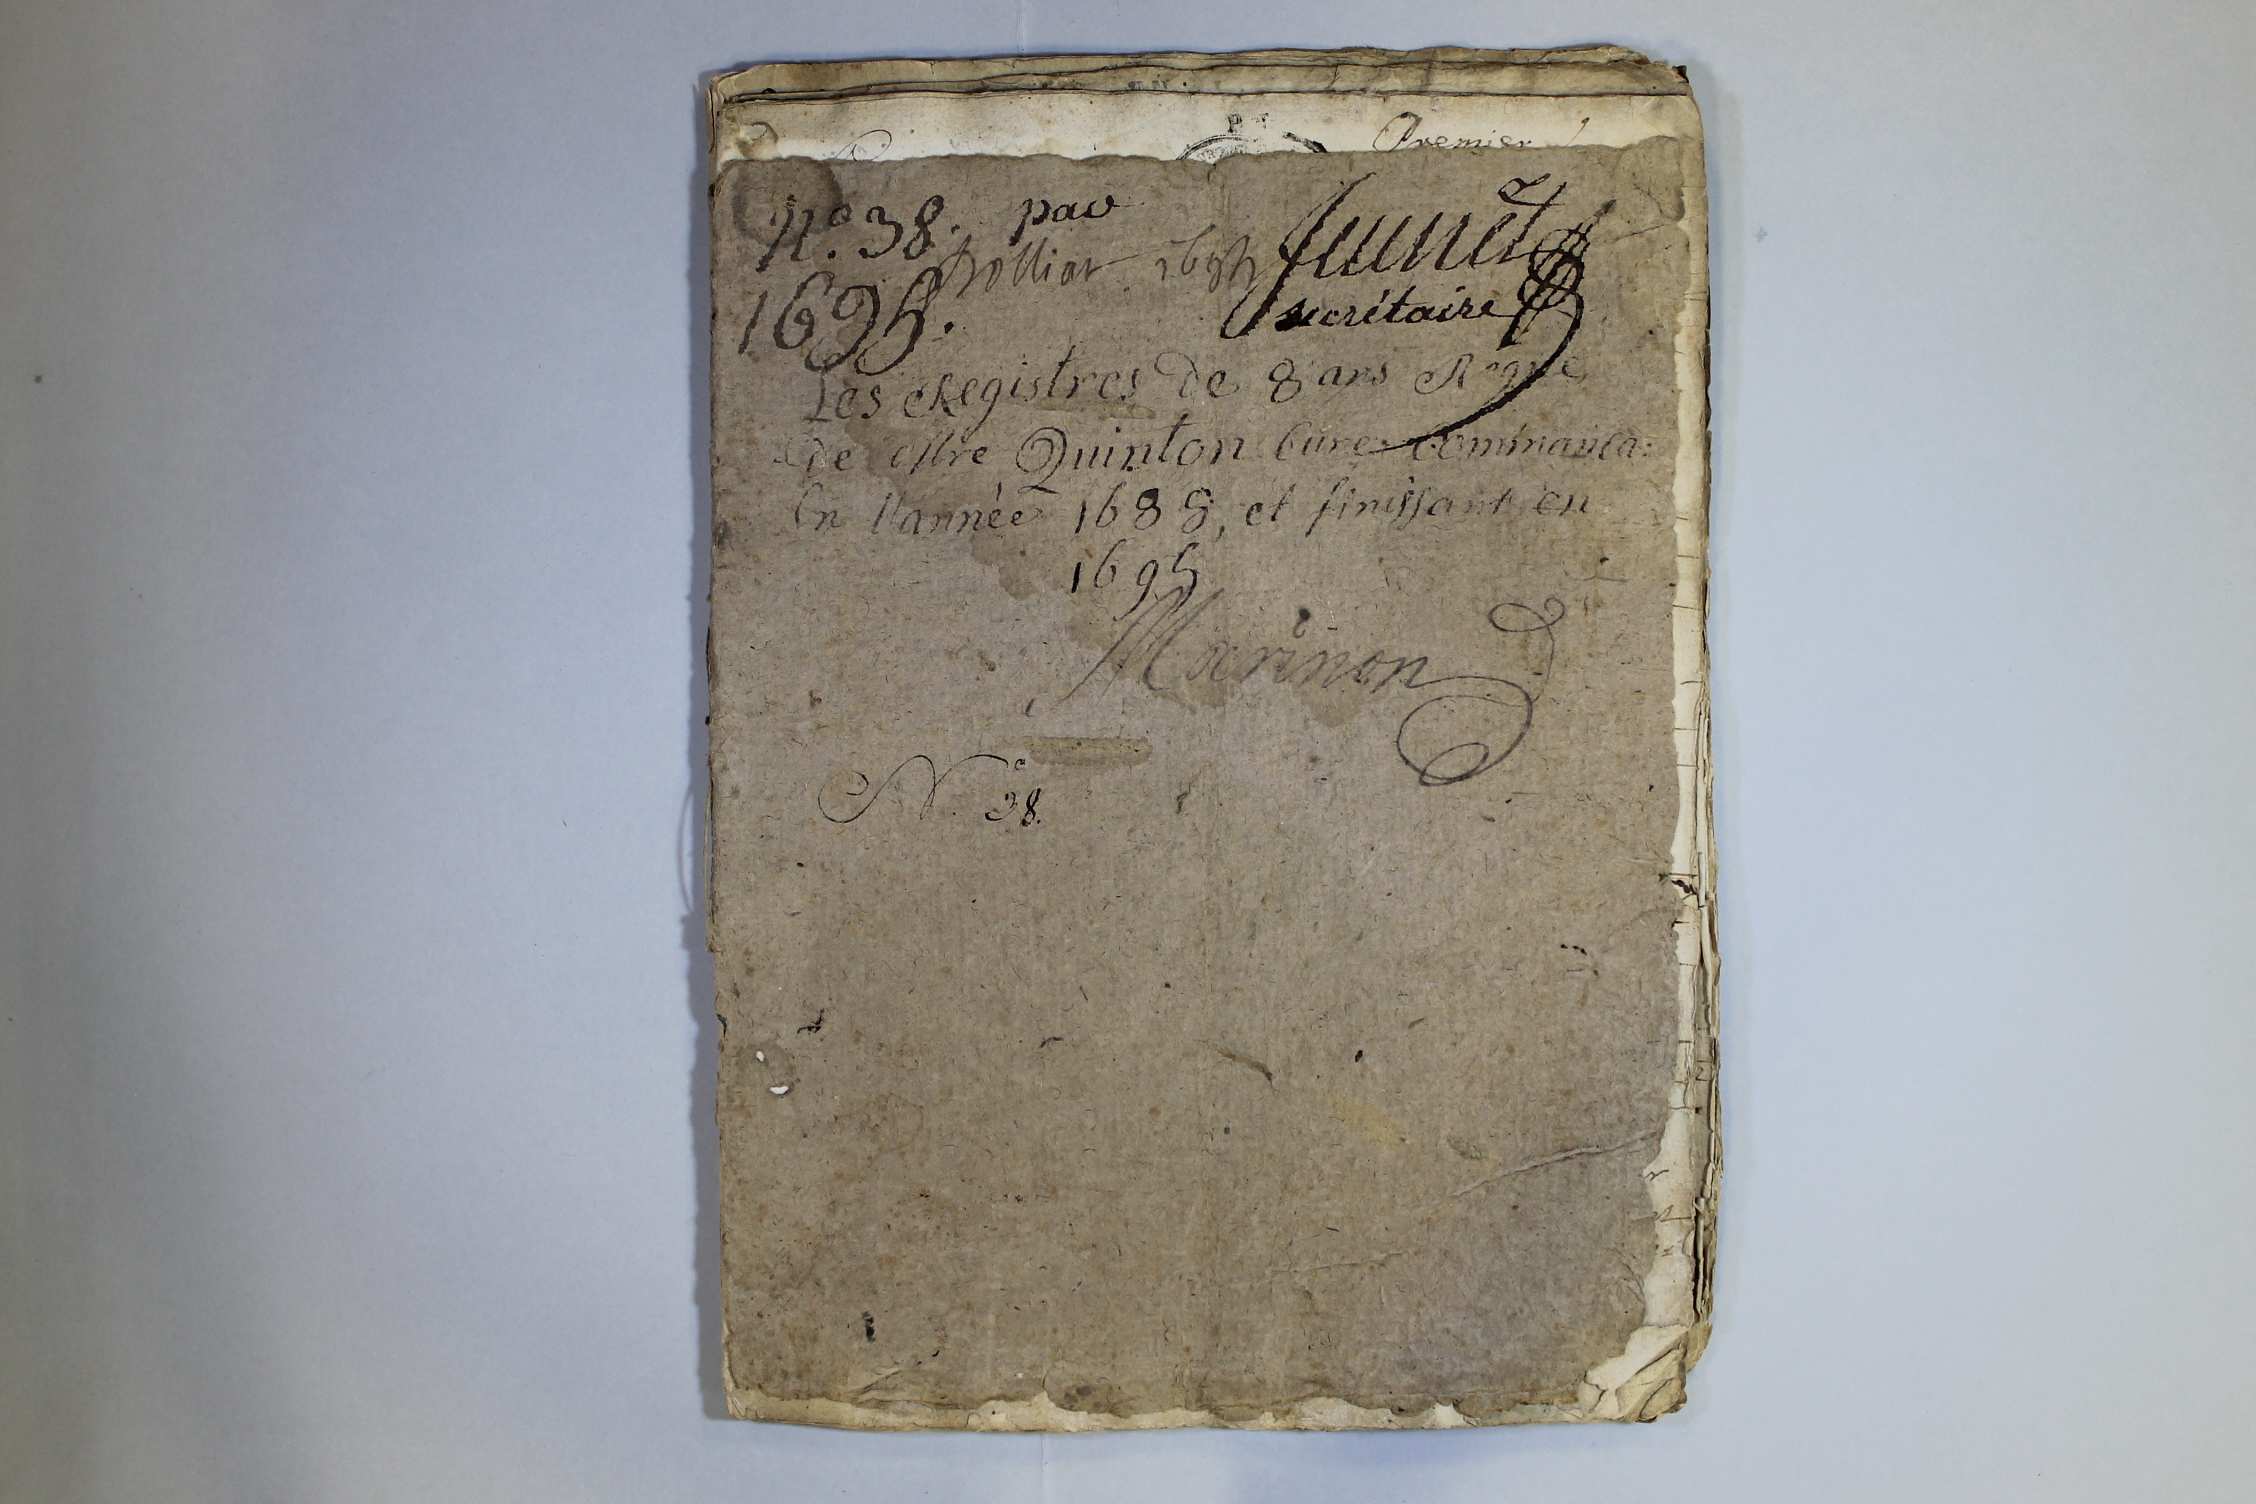 Premier
N.º 38. par
1695.
secrétaire
Les Registres de 8 ans Regne
de Mre Quinton Curé commança:
En l'année 1688, et finissant en
1695
Marinon
N.º 38.